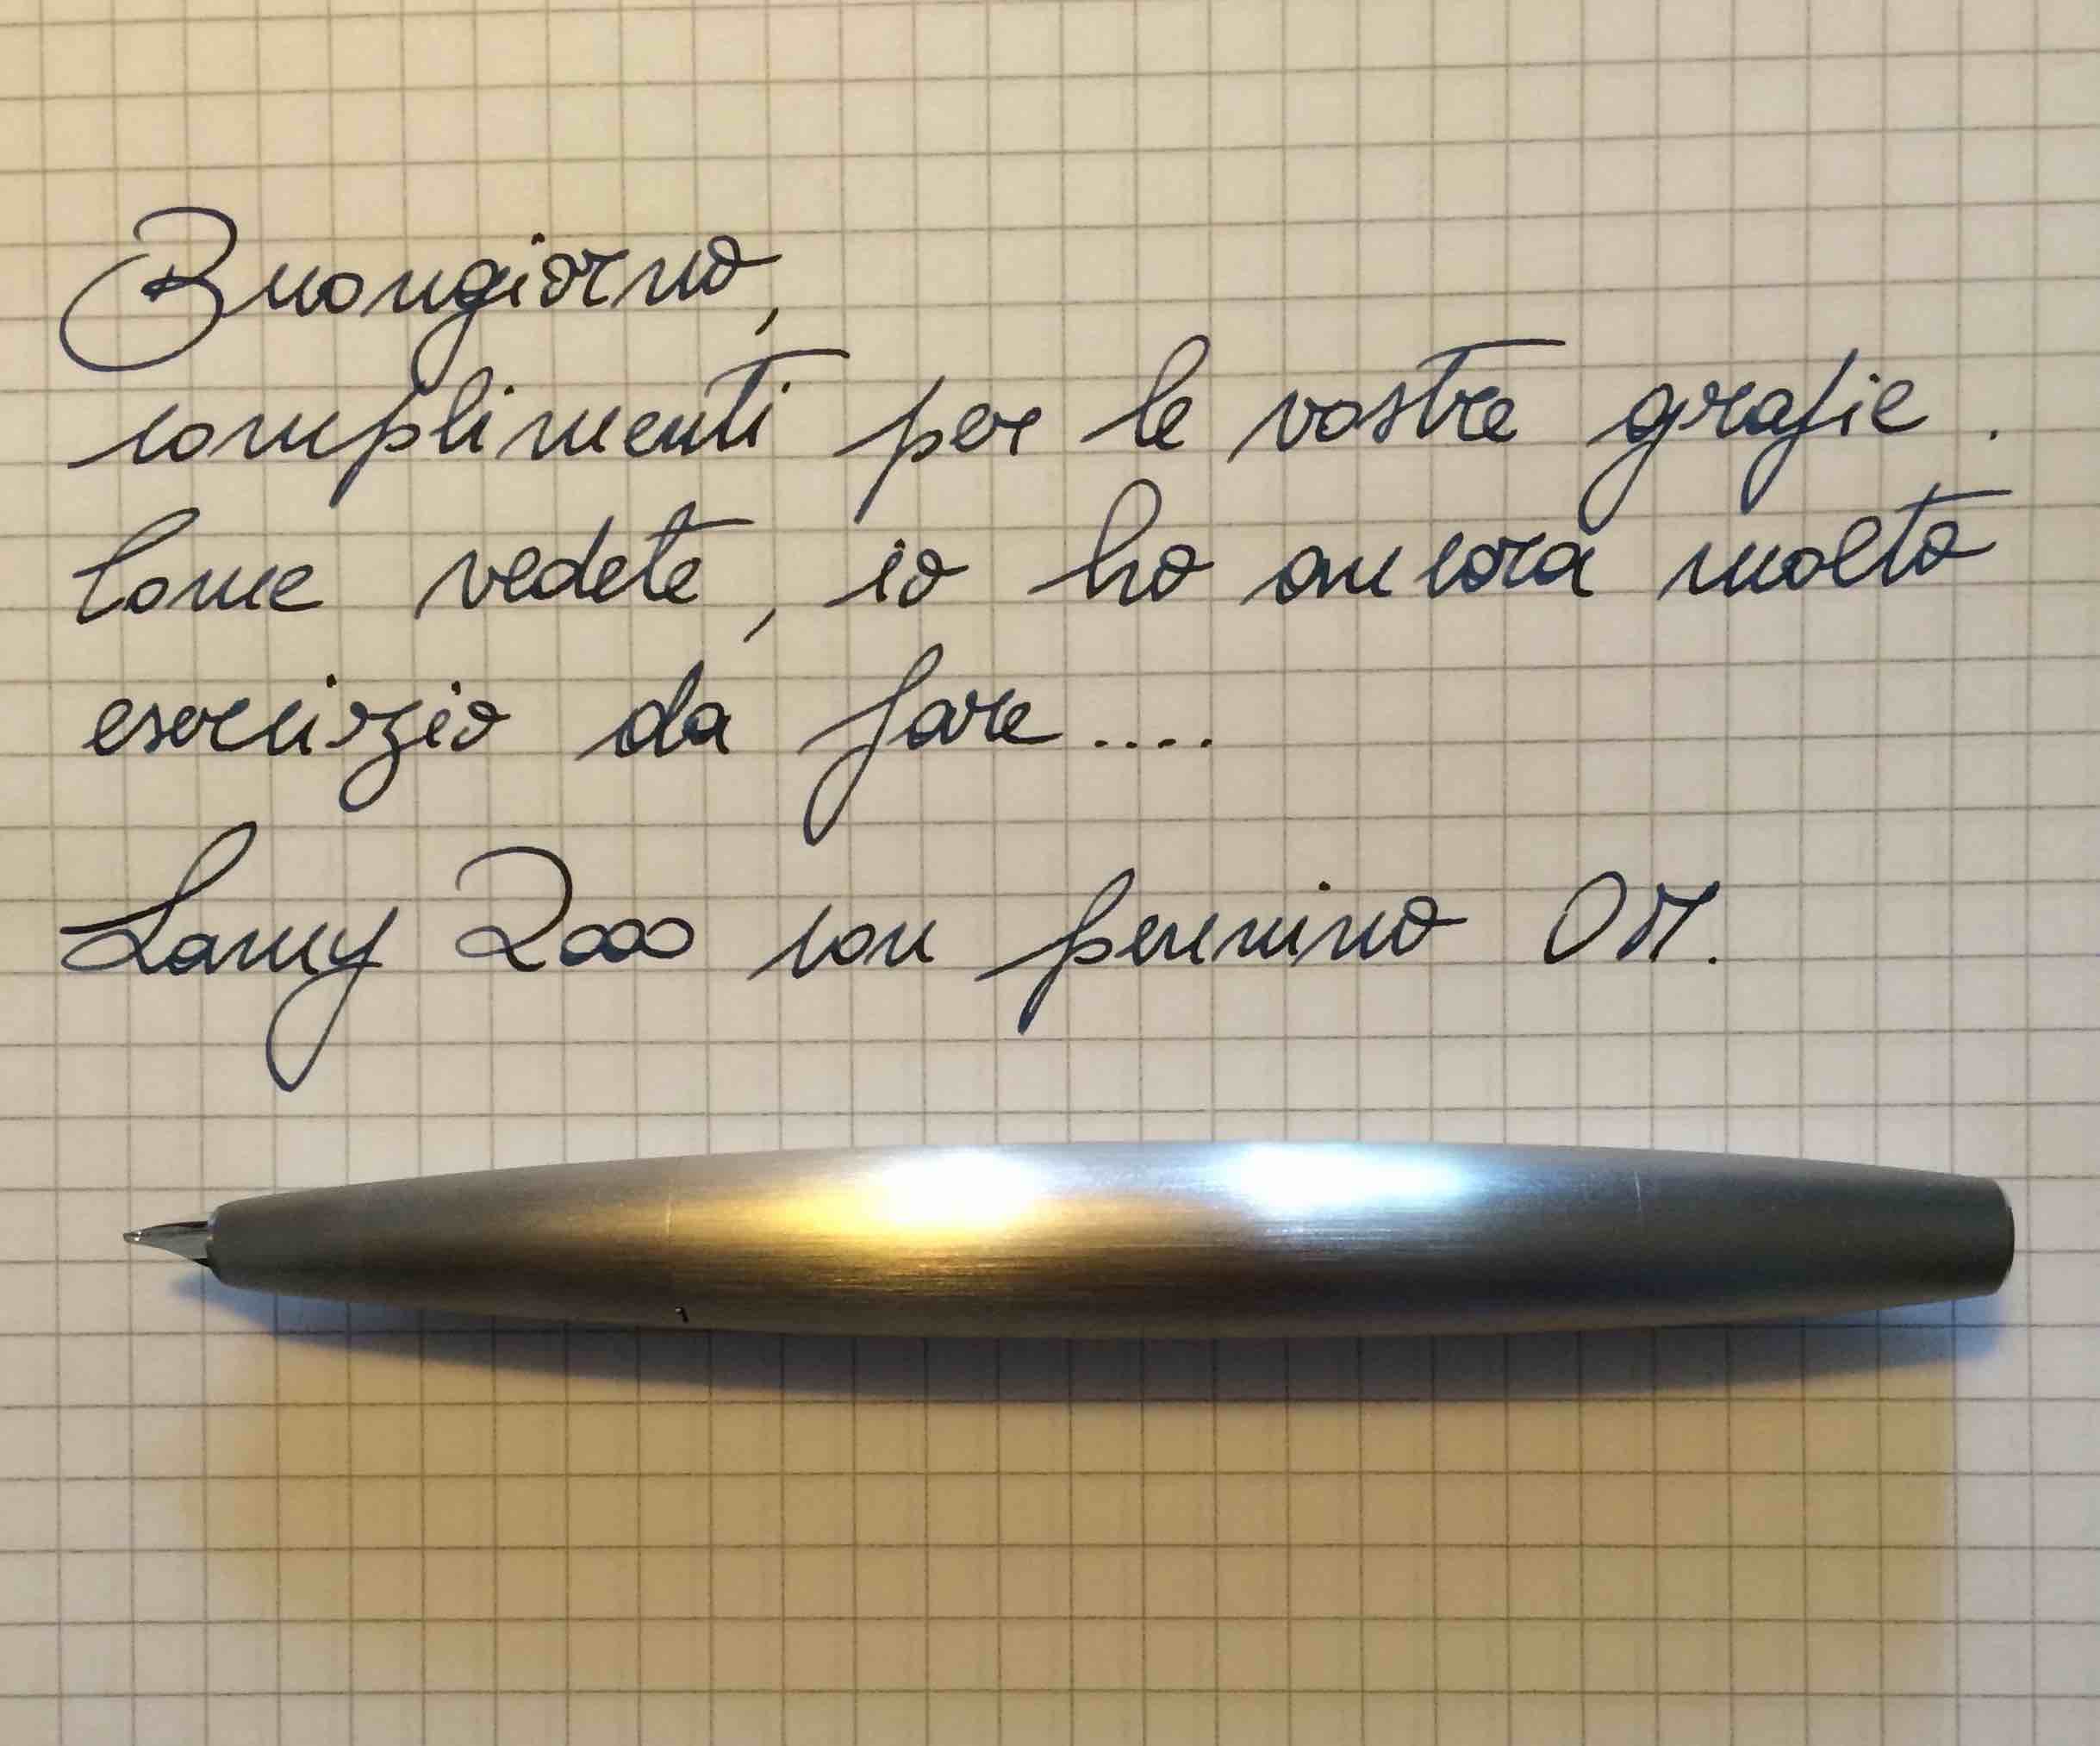 Buongiorno,
complimenti per le vostre grafie.
Come vedete, io ho ancora molto
esercizio da fare....
Lamy 2000 con pennino OM.